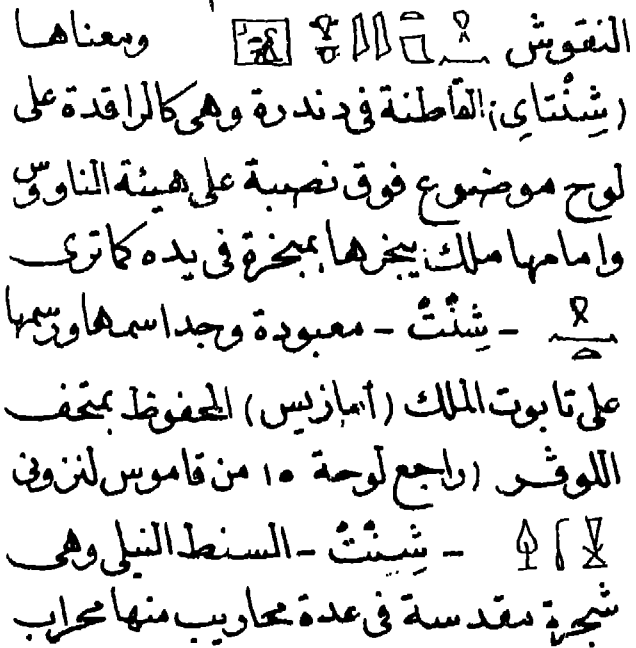 النقوش 𓍶𓈖𓏏𓉐𓇋𓇋 ومعناها
(شِنْتاىِ) القاطنة فى دندرة وهى كالراقدة على
لوح موضوع فوق نصبة على هيئة الناووس
وامامها ملك يبخرها بمبخرة فى يده كما ترى
- شِنْتْ - معبودة وجد اسمها ورسمها
على تابوت الملك (أمازيس) المحفوظ بمتحف
اللوڤر (راجع لوحة ١٥ من قاموس لنزونى
- شِنْتْ - السنط النيلى وهى
شجرة مقدسة فى عدة محاريب منها محراب